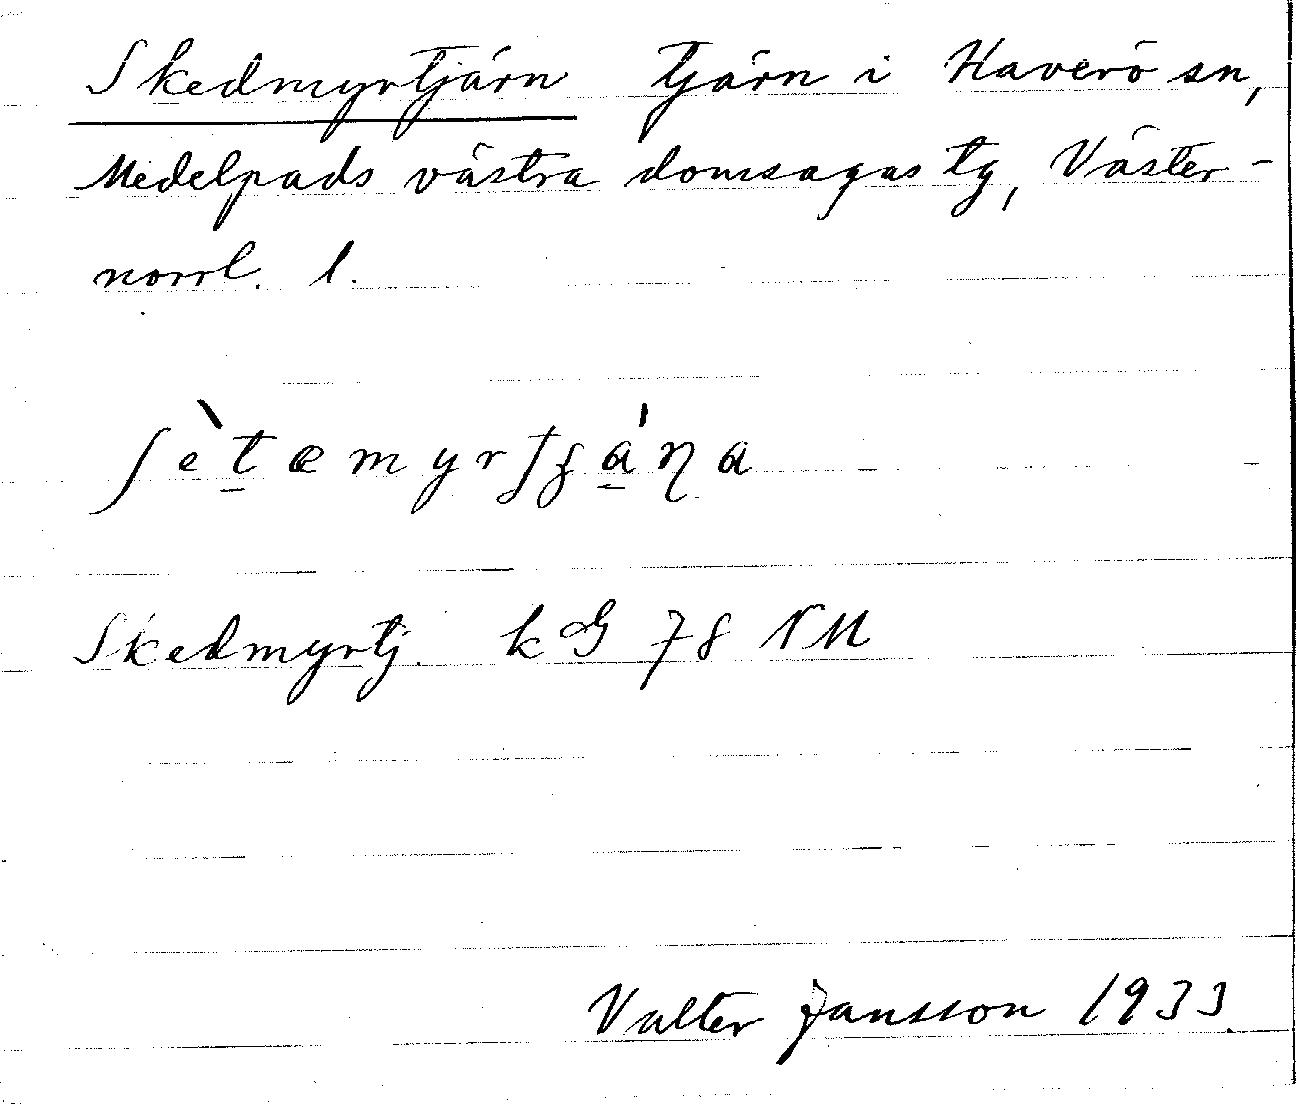 Skedmyrtjärn tjärn i Haverö sn,
Medelpads västra domsagas tg, Väster-
norrl. l.
ʃètæmyrʃʒáŋa
Skedmyrtj. kG 78 NM
Valter Jansson 1933.